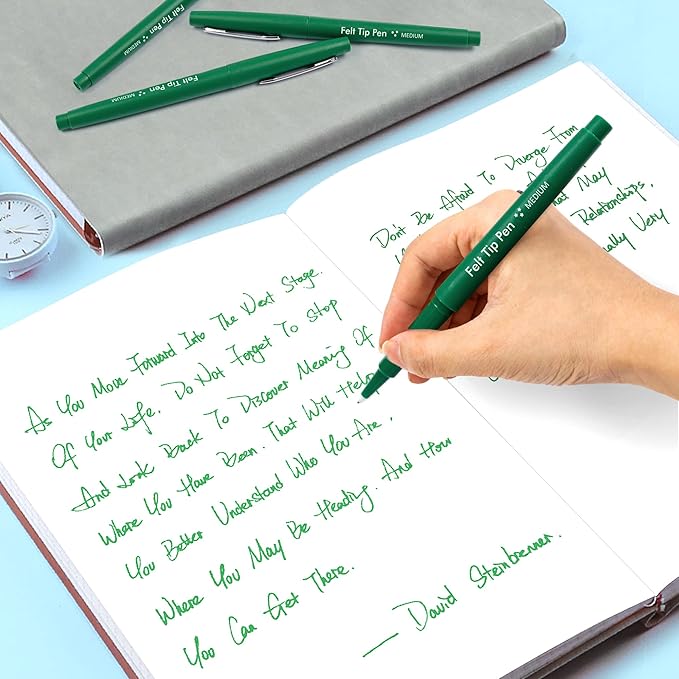 Felt Tip Pen MEDIUM
Felt Tip Pen MEDIUM
Felt Tip Pen MEDIUM
Felt Tip Pen MEDIUM
As You Move Forward Into The Next Stage.
Of Your Life. Do Not Forget To Stop
And Look Back To Discover Meaning Of
Where You Have Been. That Will Help
You Better Understand Who You Are.
Where You May Be Heading. And How
You Can Get There.
— David Steinbrenner.
Don't Be Afraid To Diverge From
May
Relationships,
Very